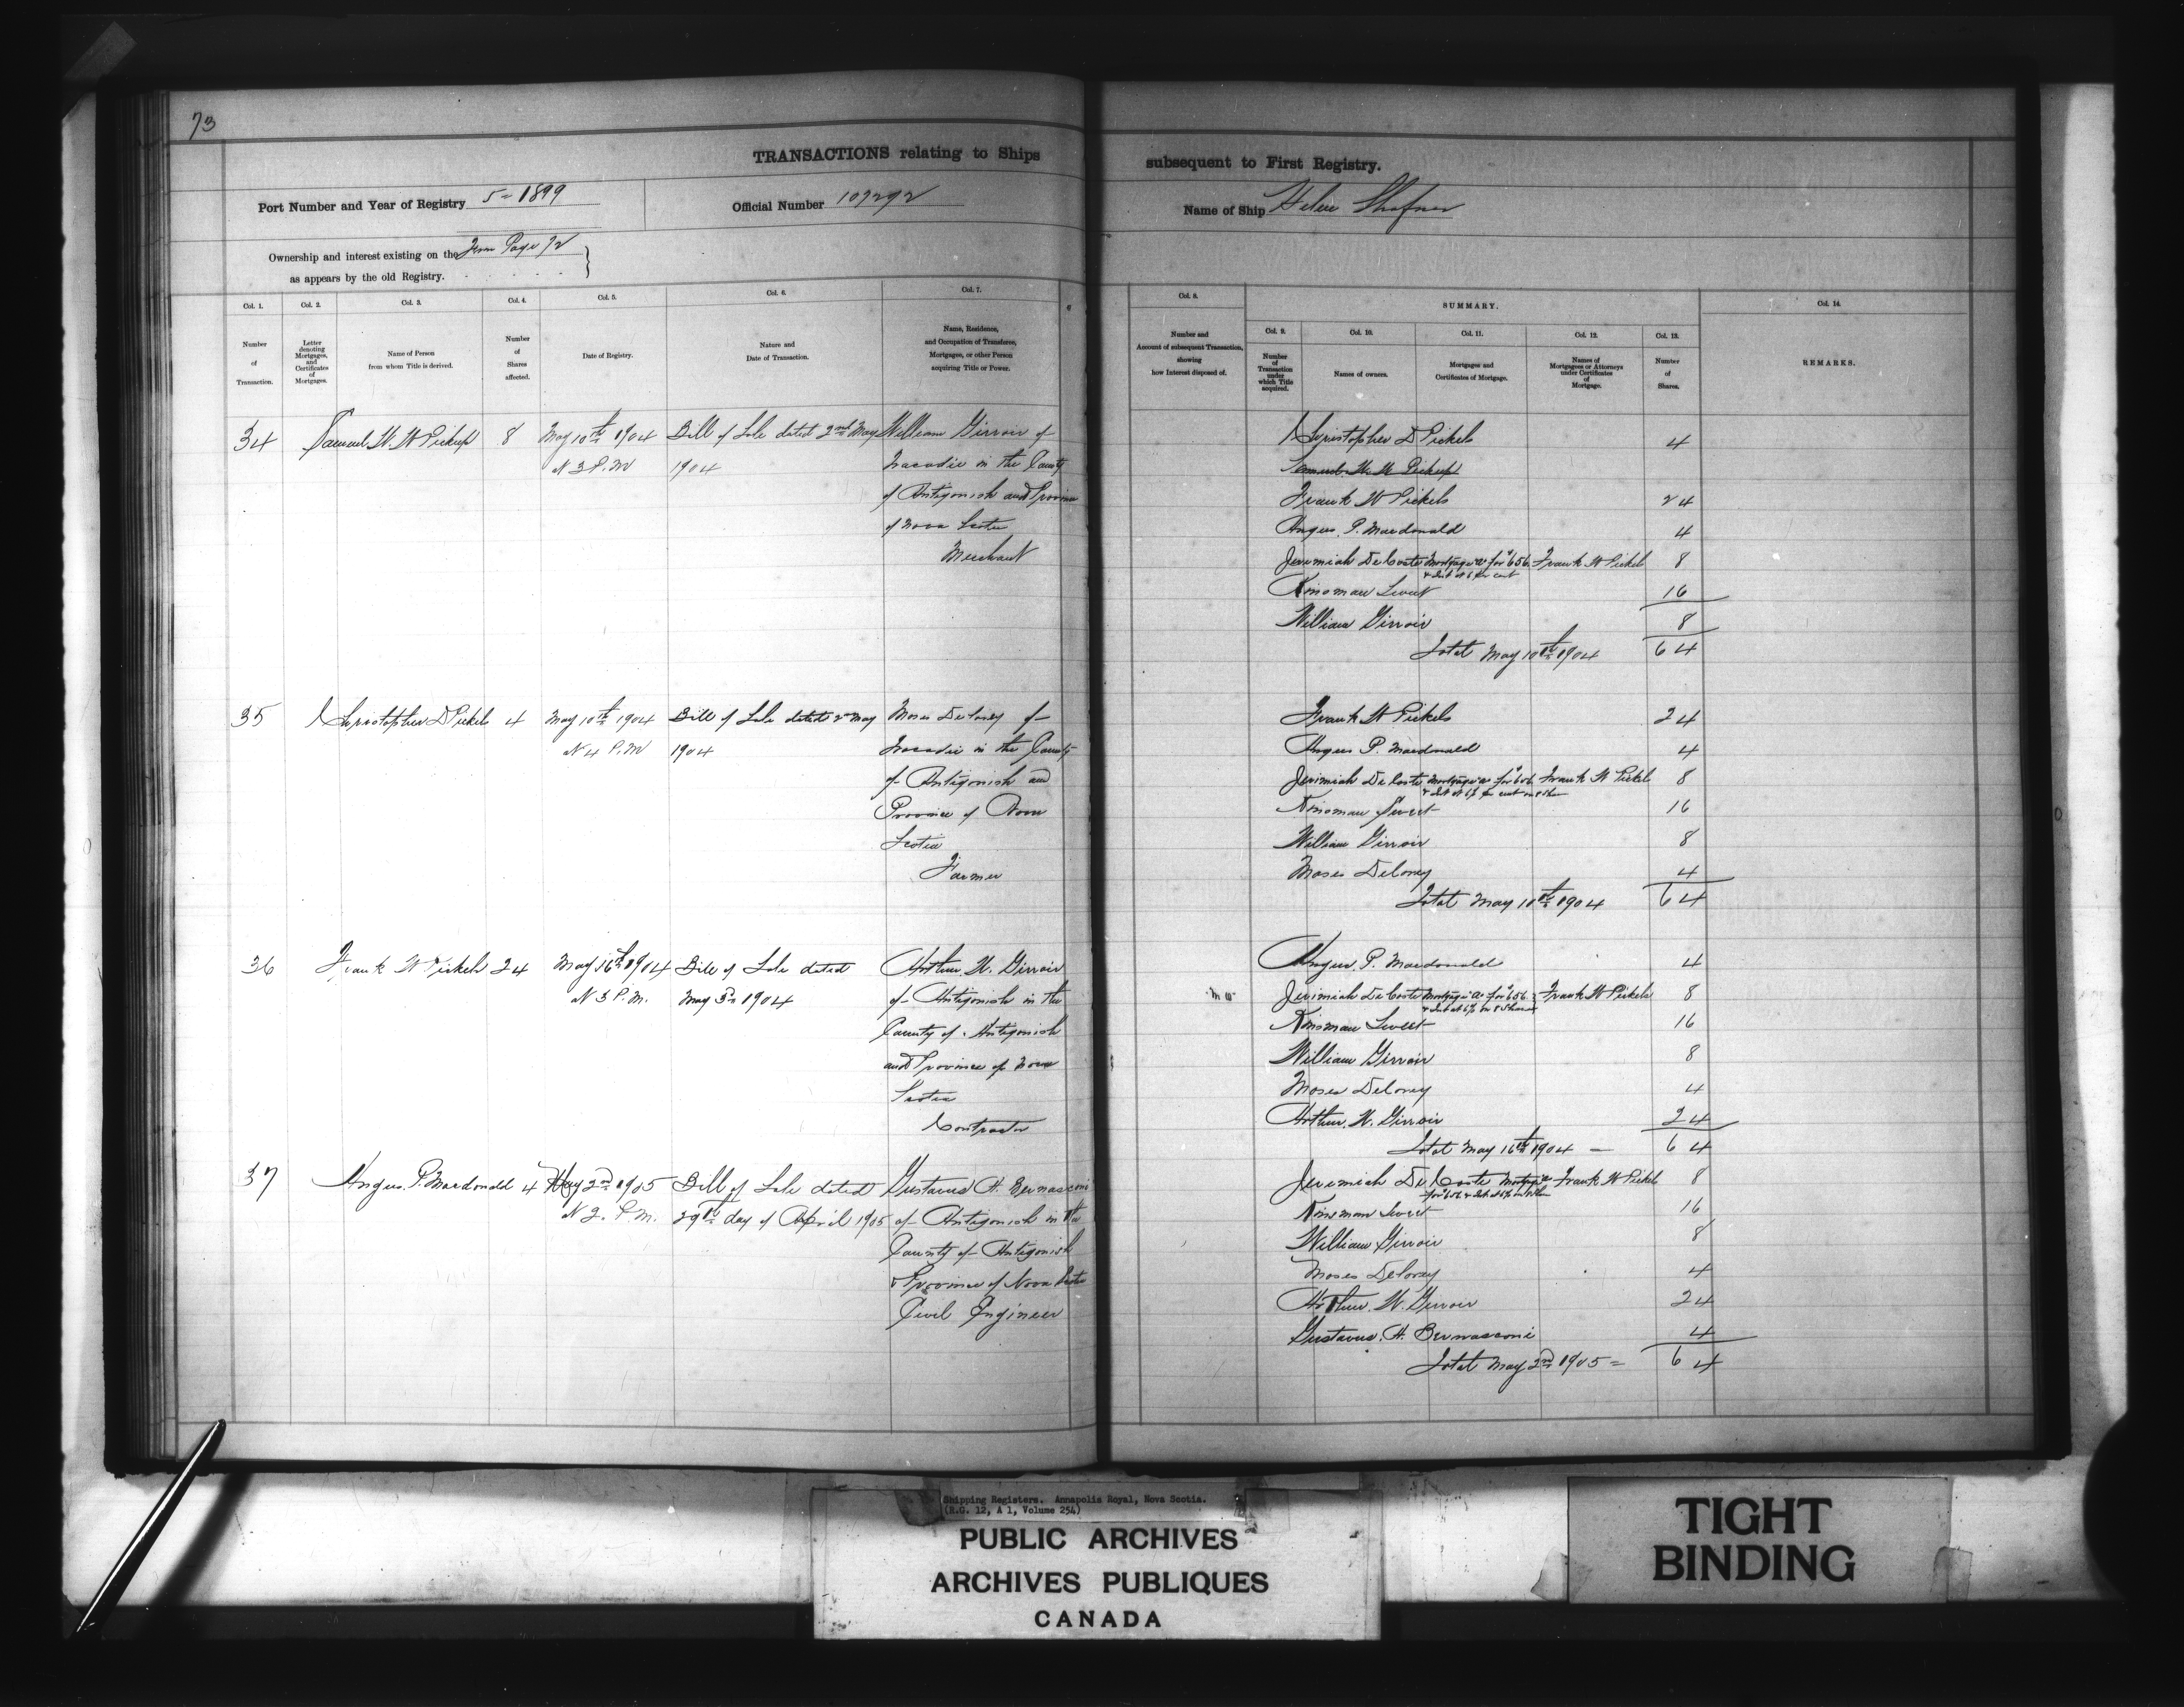 73
TRANSACTIONS relating to Ships subsequent to First Registry.
Port Number and Year of Registry 5 = 1899
Official Number 107292
Name of Ship Helen Shafner
Ownership and interest existing on the From Page 72
as appears by the old Registry.
Col. 1.
Number
of
Transaction.
Col. 2.
Letter
denoting
Mortgages,
and
Certificates
of
Mortgages.
Col. 3.
Name of Person
from whom Title is derived.
Col. 4.
Number
of
Shares
affected.
Col. 5.
Date of Registry.
Col. 6.
Nature and
Date of Transaction.
Col. 7.
Name, Residence,
and Occupation of Transferee,
Mortgagee, or other Person
acquiring Title or Power.
Col. 8.
Number and
Account of subsequent Transaction,
showing
how Interest disposed of.
SUMMARY.
Col. 9.
Number
of
Transaction
under
which Title
acquired.
Col. 10.
Names of owners.
Col. 11.
Mortgages and
Certificates of Mortgage.
Col. 12.
Names of
Mortgagees or Attorneys
under Certificates
of
Mortgage.
Col. 13.
Number
of
Shares.
Col. 14.
REMARKS.
34 Samuel W. W Pickup 8 May 10th 1904 Bill of Sale dated 2nd May William Girroir of
At 3 P.M 1904 Tracadie in the County
of Antigonish and Province
of Nova Scotia
Merchant
Christopher D Pickels 4
Samuel W. W Pickup
Frank W Pickels 24
Angus. P. Macdonald 4
Jeremiah DeCoste Mortgage "A" for $656. Frank W Pickels 8
& Int at 6 per cent
Kinsman Sweet 16
William Girroir 8
Total May 10th 1904 64
35 Christopher D Pickels 4 May 10th 1904 Bill of Sale dated 2nd May Moses Delorey of
At 4 P.M 1904 Tracadie in the County
of Antigonish and
Province of Nova
Scotia
Farmer
Frank W Pickels 24
Angus P. Macdonald 4
Jeremiah DeCoste Mortgage "A" for $656. Frank W Pickels 8
& Int at 6% per cent on 8 Shares
Kinsman Sweet 16
William Girroir 8
Moses Delorey 4
Total May 10th 1904 64
36 Frank W Pickels 24 May 16th 1904 Bill of Sale dated Arthur W. Girroir
At 3 P.M. May 3rd 1904 of Antigonish in the
County of Antigonish
and Province of Nova
Scotia
Contractor
Angus. P. Macdonald 4
Jeremiah DeCoste Mortgage "A" for $656. Frank W Pickels 8
& Int at 6% on 8 Shares
Kinsman Sweet 16
William Girroir 8
Moses Delorey 4
Arthur. W. Girroir 24
Total May 16th 1904 — 64
37 Angus. P. Macdonald 4 May 2nd 1905 Bill of Sale dated Gustavus H. Bernasconi
At 2. P.M. 29th day of April 1905 of Antigonish in the
County of Antigonish
& Province of Nova Scotia
Civil Engineer
Jeremiah DeCoste Mortgage "A" Frank W Pickels 8
for $656 & Int at 6% on 8 Shares
Kinsman Sweet 16
William Girroir 8
Moses Delorey 4
Arthur. W. Girroir 24
Gustavus. H. Bernasconi 4
Total May 2nd 1905 = 64
Shipping Registers. Annapolis Royal, Nova Scotia.
(R.G. 12, A 1, Volume 254)
PUBLIC ARCHIVES
ARCHIVES PUBLIQUES
CANADA
TIGHT
BINDING